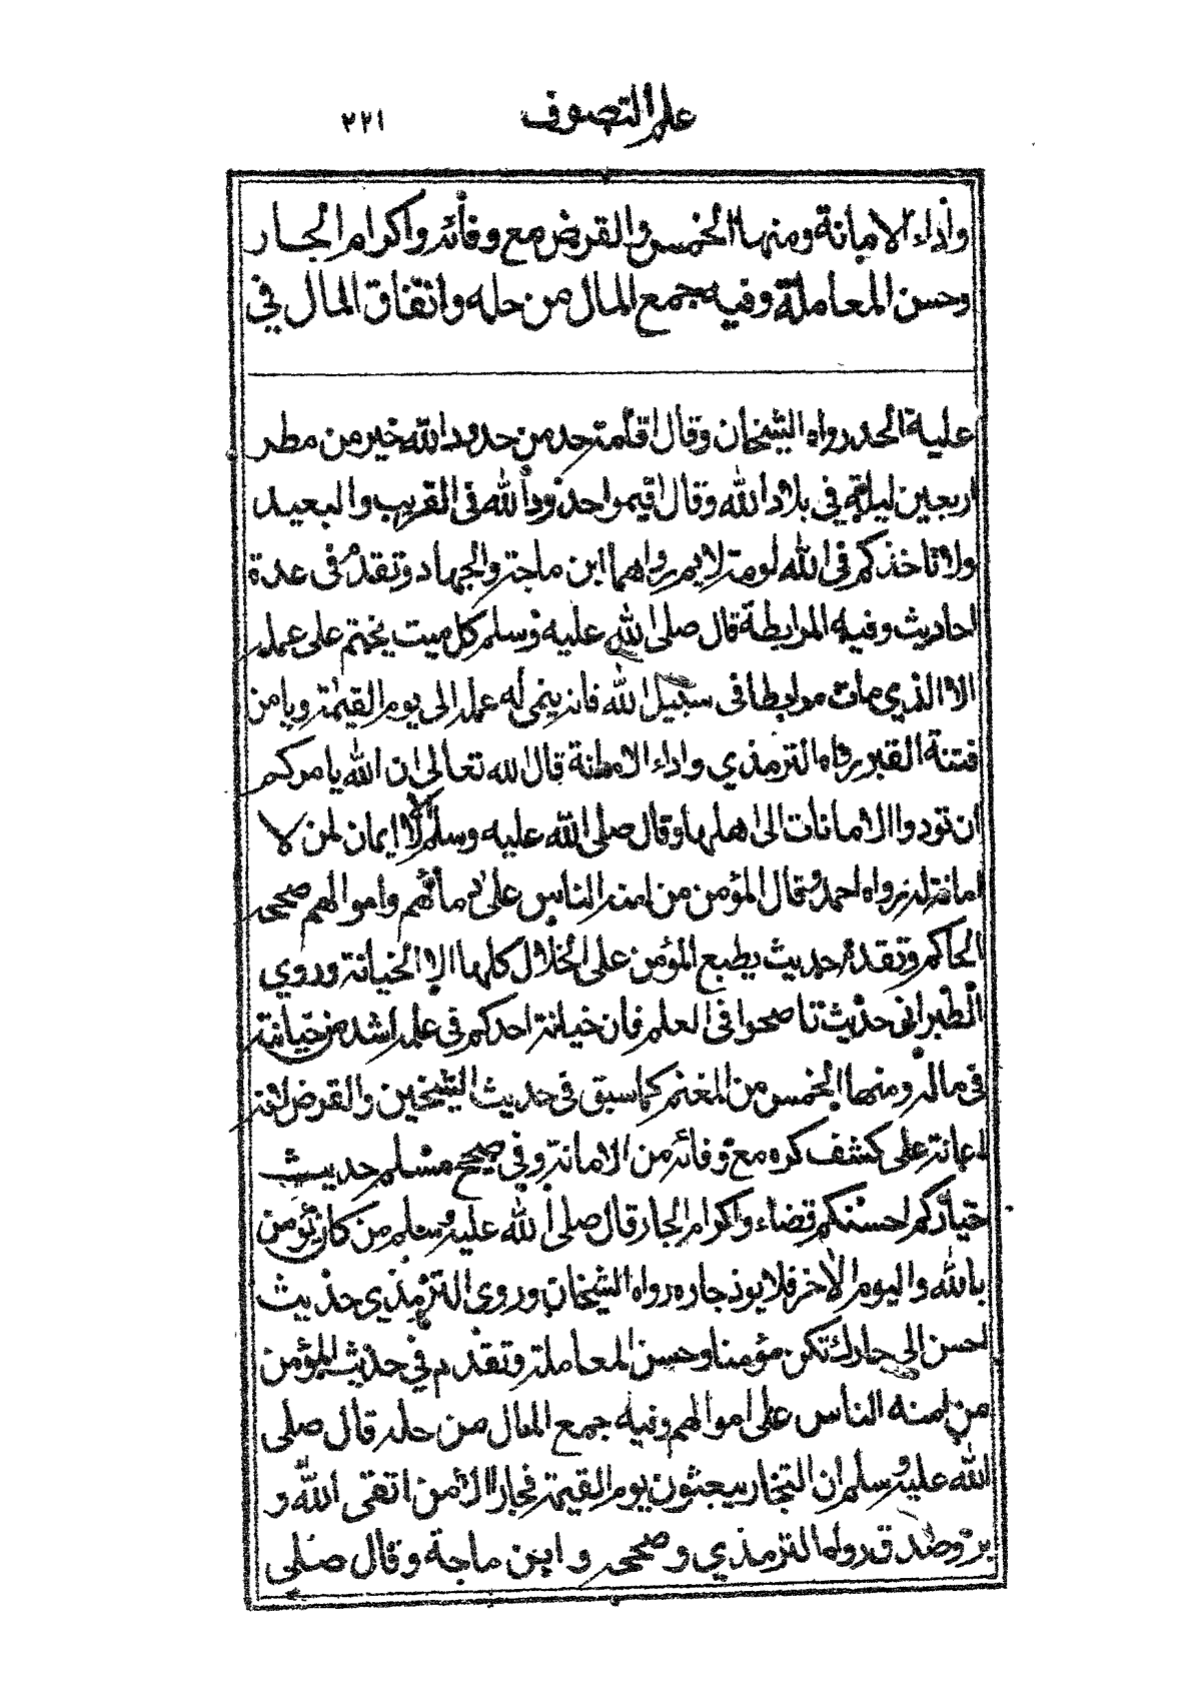 علم التصوف ٢٢١
وأداء الامانة ومنها الخمس والقرض مع وفائه واكرام الجار
وحسن المعاملة وفيه جمع المال من حله وانفاق المال في
عليه الحد رواه الشيخان وقال اقامة حد من حدود الله خير من مطر
اربعين ليلة في بلاد الله وقال اقيموا حدود الله في القريب والبعيد
ولا تاخذكم في الله لومة لايم رواهما ابن ماجة والجهاد وتقدم في عدة
احاديث وفيه المرابطة قال صلى الله عليه وسلم كل ميت يختم على عمله
الا الذي مات مرابطا في سبيل الله فانه ينمى له عمله الى يوم القيمة ويامن
فتنة القبر رواه الترمذي واداء الامانة قال الله تعالى ان الله يامركم
ان تودوا الامانات الى اهلها وقال صلى الله عليه وسلم لا ايمان لمن لا
امانة له رواه احمد وقال المؤمن من امنه الناس على دمائهم واموالهم صححه
الحاكم وتقدم حديث يطبع المؤمن على الخلال كلها الا الخيانة وروي
الطبراني حديث تناصحوا في العلم فان خيانة احدكم في علمه اشد من خيانته
في ماله ومنها الخمس من المغنم كما سبق في حديث الشيخين والقرض لانه
اعانة على كشف كربه مع وفائه من الامانة وفي صحيح مسلم حديث
خياركم احسنكم قضاء واكرام الجار قال صلى الله عليه وسلم من كان يؤمن
بالله واليوم الاخر فلا يوذ جاره رواه الشيخان وروى الترمذي حديث
احسن الى جارك تكن مؤمنا وحسن المعاملة وتقدم في حديث المؤمن
من امنه الناس على اموالهم وفيه جمع المال من حله قال صلى
الله عليه وسلم ان التجار يبعثون يوم القيمة فجارا الا من اتقى الله و
بر وصدق رواه الترمذي وصححه و ابن ماجة وقال صلى